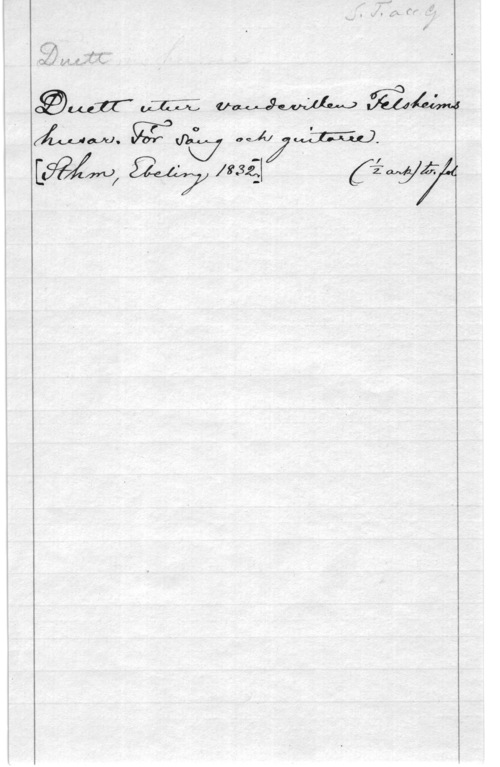 S. T. a. c. G
Duett
Duett utur vaudevillen Felsheims
husar. För sång och guitarre.
[Sthm, Ebeling 1832.] (½ ark) tv. fol